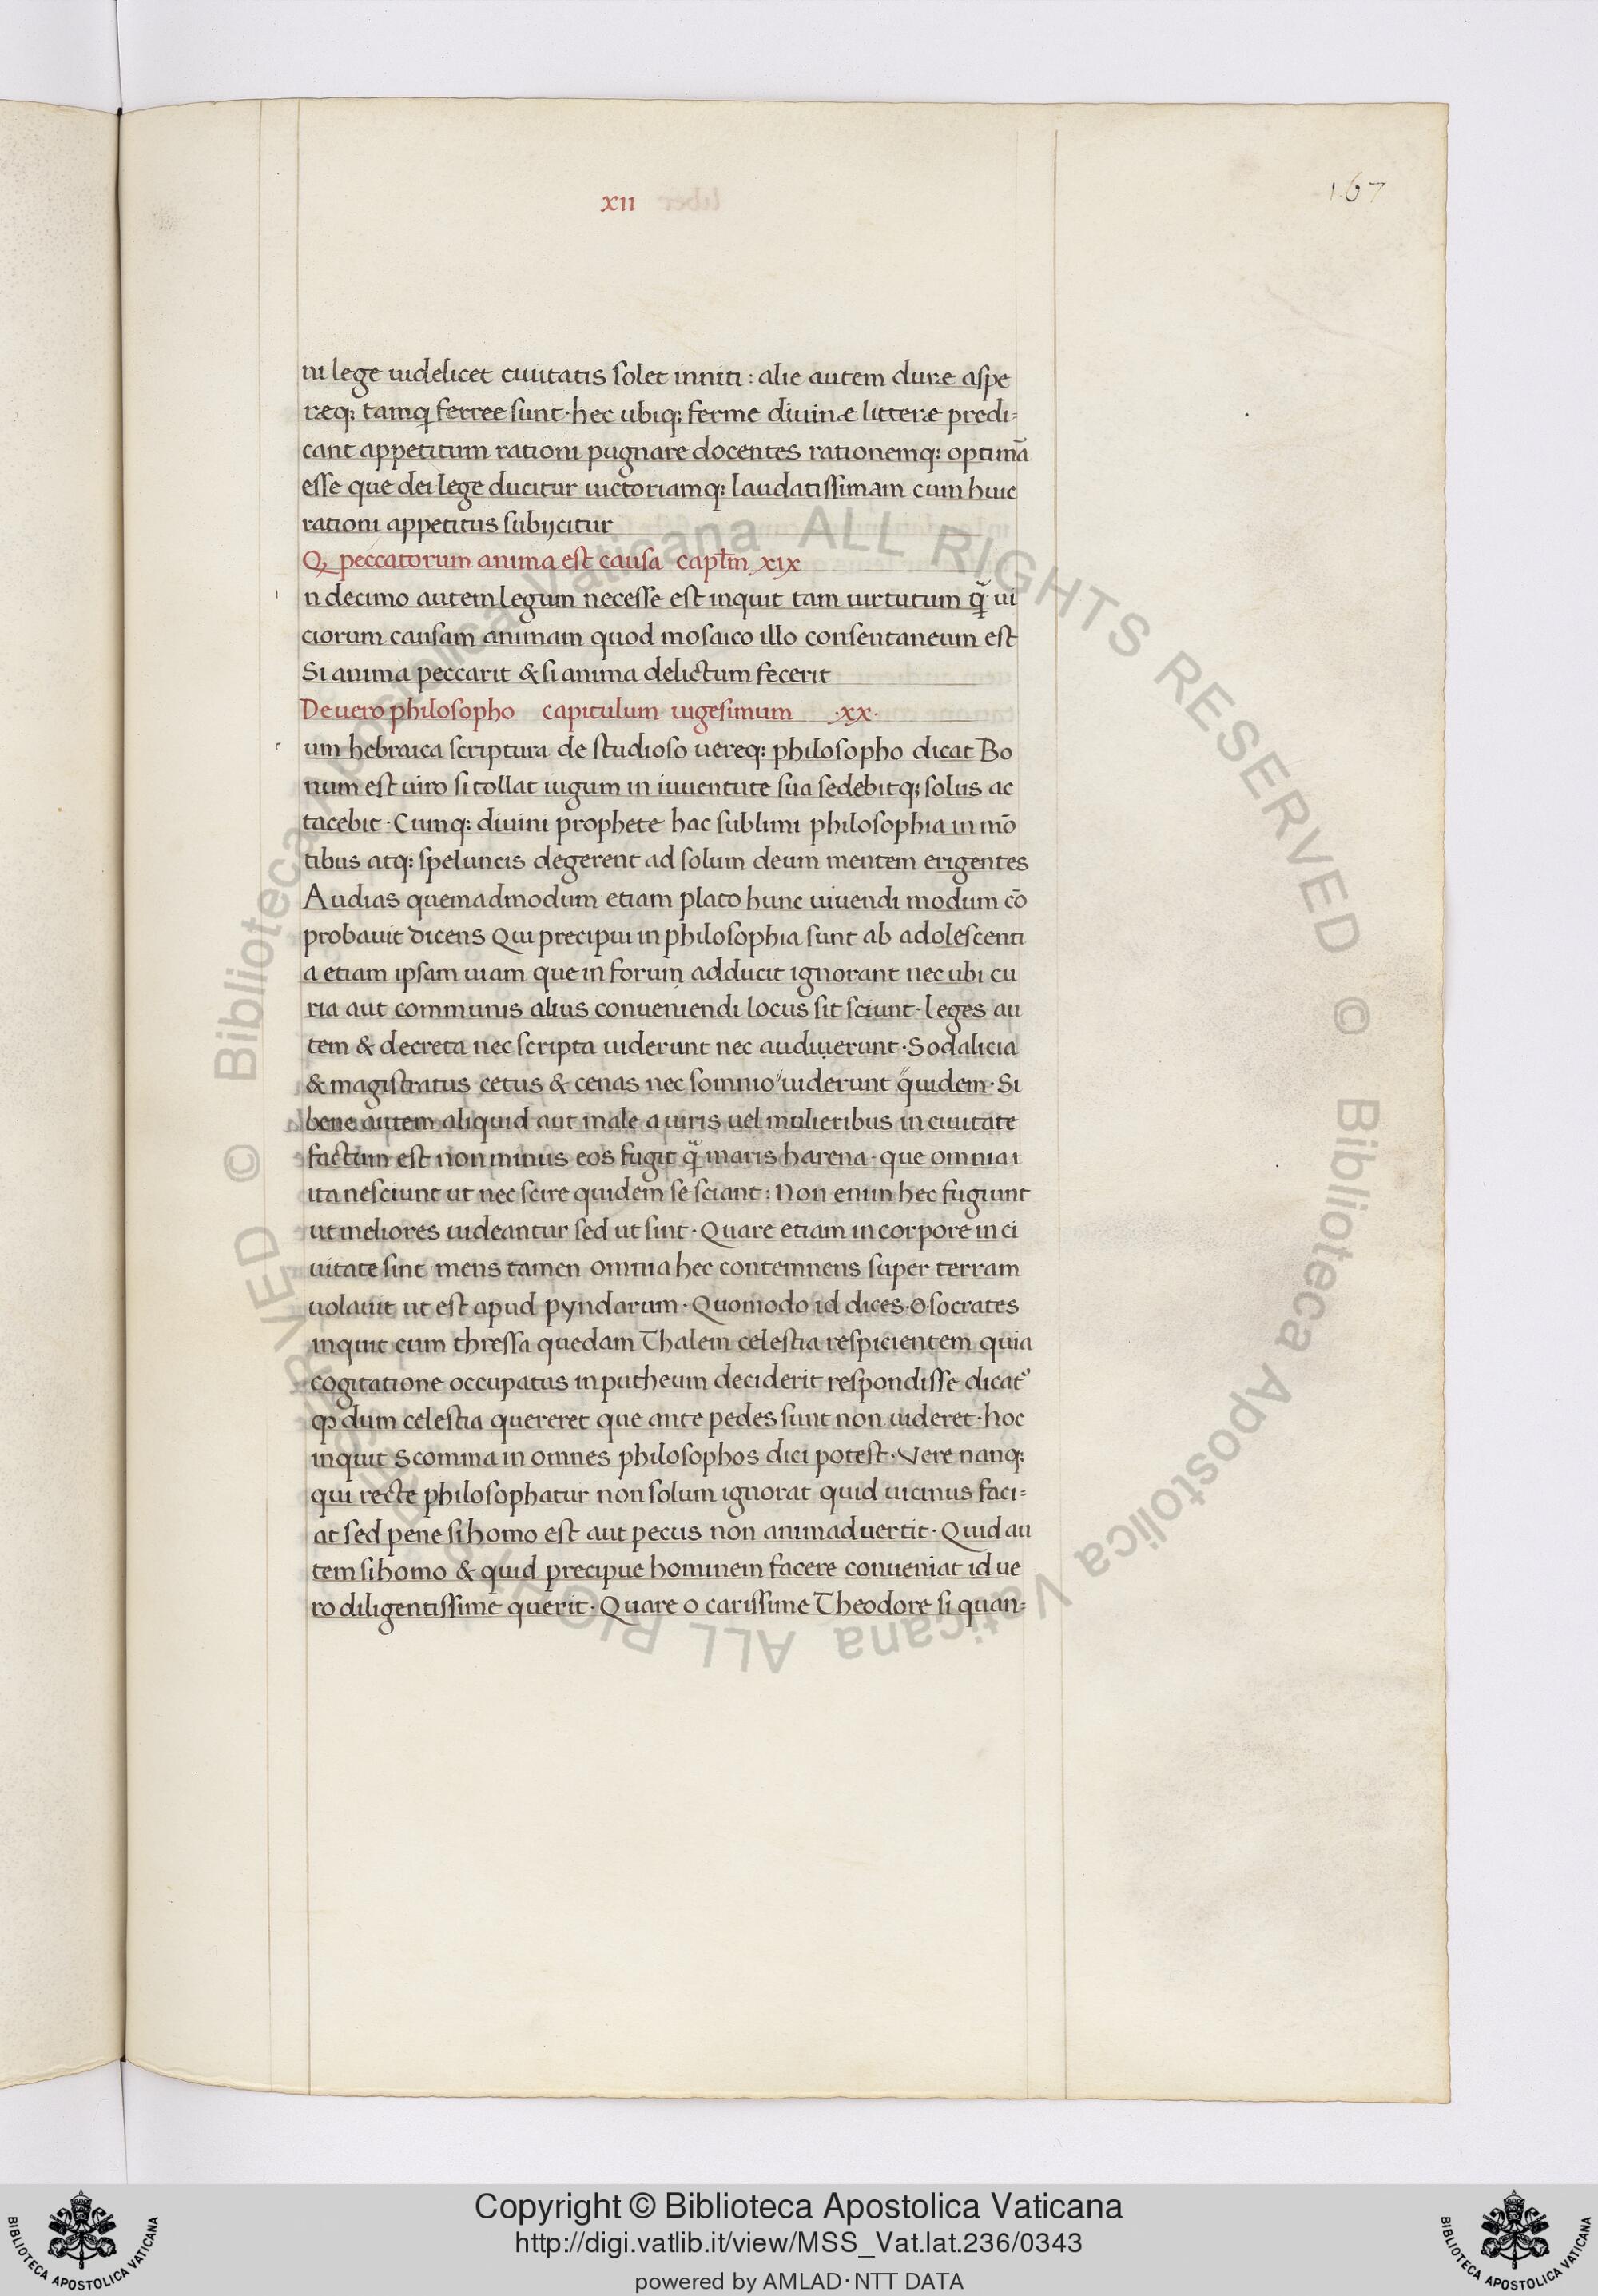 xii
167
ni lege uidelicet ciuitatis solet inniti : alie autem duræ aspe
ræq; tamq̄ ferree sunt · hec ubiq; ferme diuinæ litteræ predi-
cant appetitum rationi pugnare docentes rationemq; optimā
esse que dei lege ducitur uictoriamq; laudatissimam cum huic
rationi appetitus subijcitur
Q, peccatorum anima est causa capl̄m xix
n decimo autem legum necesse est inquit tam uirtutum q̄ ui
ciorum causam animam quod mosaico illo consentaneum est
Si anima peccarit & si anima delictum fecerit
De uero philosopho capitulum uigesimum ·xx·
um hebraica scriptura de studioso uereq; philosopho dicat Bo
num est uiro si tollat iugum in iuuentute sua sedebitq; solus ac
tacebit · Cumq; diuini prophete hac sublimi philosophia in mō
tibus atq; speluncis degerent ad solum deum mentem erigentes
Audias quemadmodum etiam plato hunc uiuendi modum cō
probauit dicens Qui precipui in philosophia sunt ab adolescenti
a etiam ipsam uiam que in forum adducit ignorant nec ubi cu
ria aut communis alius conueniendi locus sit sciunt · leges au
tem & decreta nec scripta uiderunt nec audiuerunt · Sodalicia
& magistratus cetus & cenas nec somnio uiderunt quidem · Si
bene autem aliquid aut male a uiris uel mulieribus in ciuitate
factum est non minus eos fugit q̄ maris harena · que omnia i
ita nesciunt ut nec scire quidem se sciant : Non enim hec fugiunt
ut meliores uideantur sed ut sint · Quare etiam in corpore in ci
uitate sint mens tamen omnia hec contemnens super terram
uolauit ut est apud pyndarum · Quomodo id dices · O · socrates
inquit cum thressa quedam Thalem celestia respicientem quia
cogitatione occupatus in putheum deciderit respondisse dicat̉
qꝫ dum celestia quereret que ante pedes sunt non uideret · hoc
inquit Scomma in omnes philosophos dici potest · Vere nanq;
qui recte philosophatur non solum ignorat quid uicinus faci-
at sed pene si homo est aut pecus non animaduertit · Quid au
tem si homo & quid precipue hominem facere conueniat id ue
ro diligentissime querit · Quare o carissime Theodore si quan-
Copyright © Biblioteca Apostolica Vaticana
http://digi.vatlib.it/view/MSS_Vat.lat.236/0343
powered by AMLAD·NTT DATA
BIBLIOTECA APOSTOLICA VATICANA
BIBLIOTECA APOSTOLICA VATICANA
© Biblioteca Apostolica Vaticana ALL RIGHTS RESERVED © Biblioteca Apostolica Vaticana ALL RIGHTS RESERVED